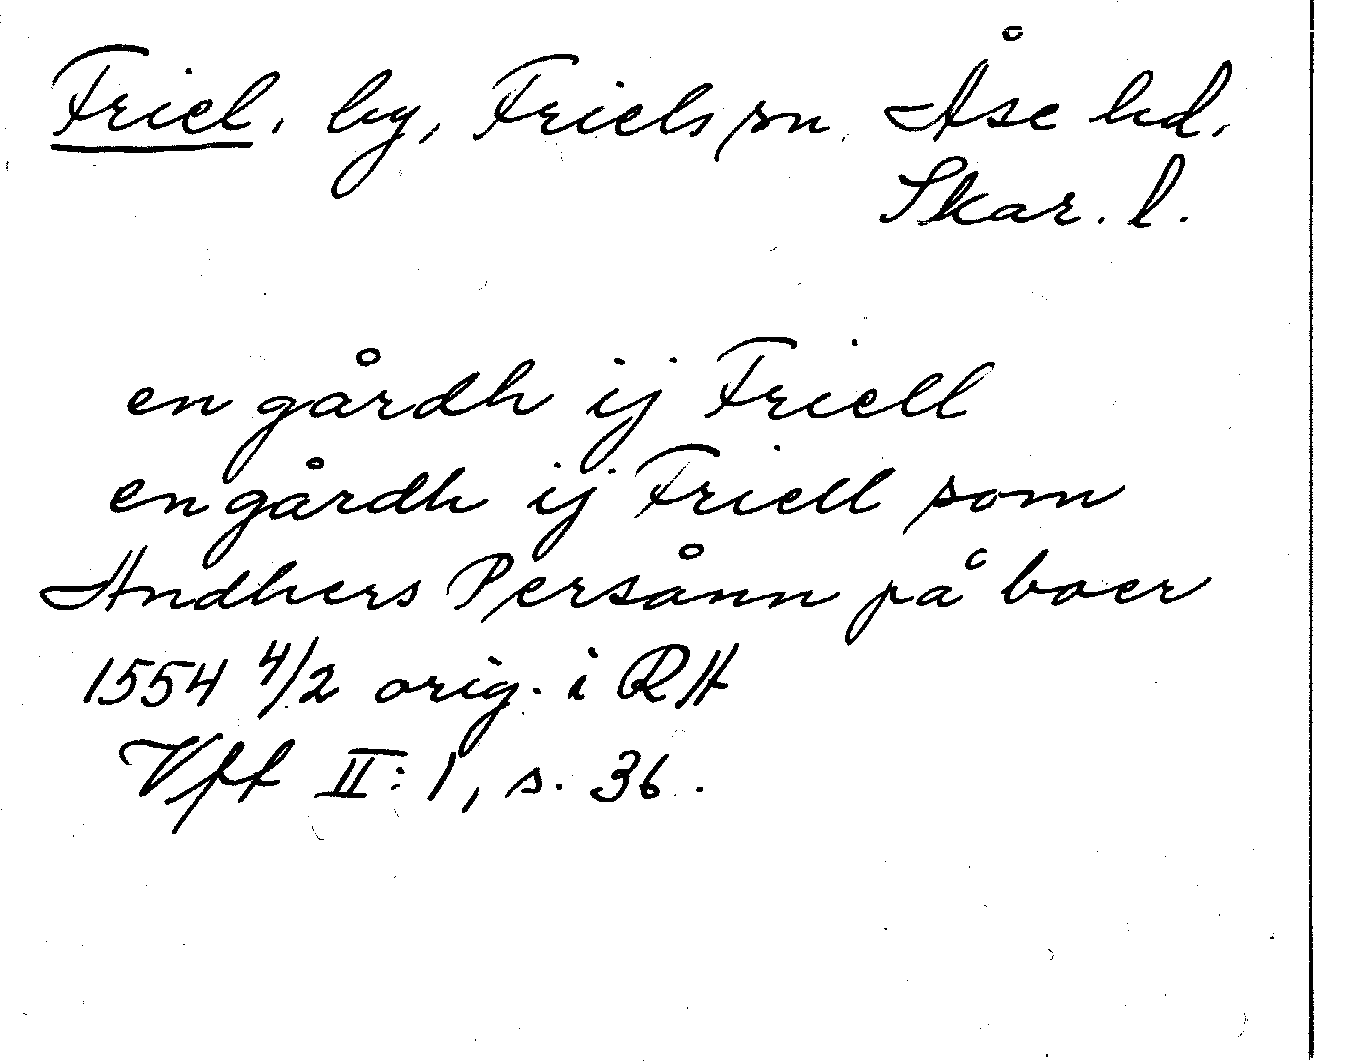 Friel, by, Friels sn, Åse hd,
Skar. l.
en gårdh ij Friell
en gårdh ij Friell som
Andhers Persånn på boer
1554 4/2 orig. i RA
Vff II: 1, s. 36.